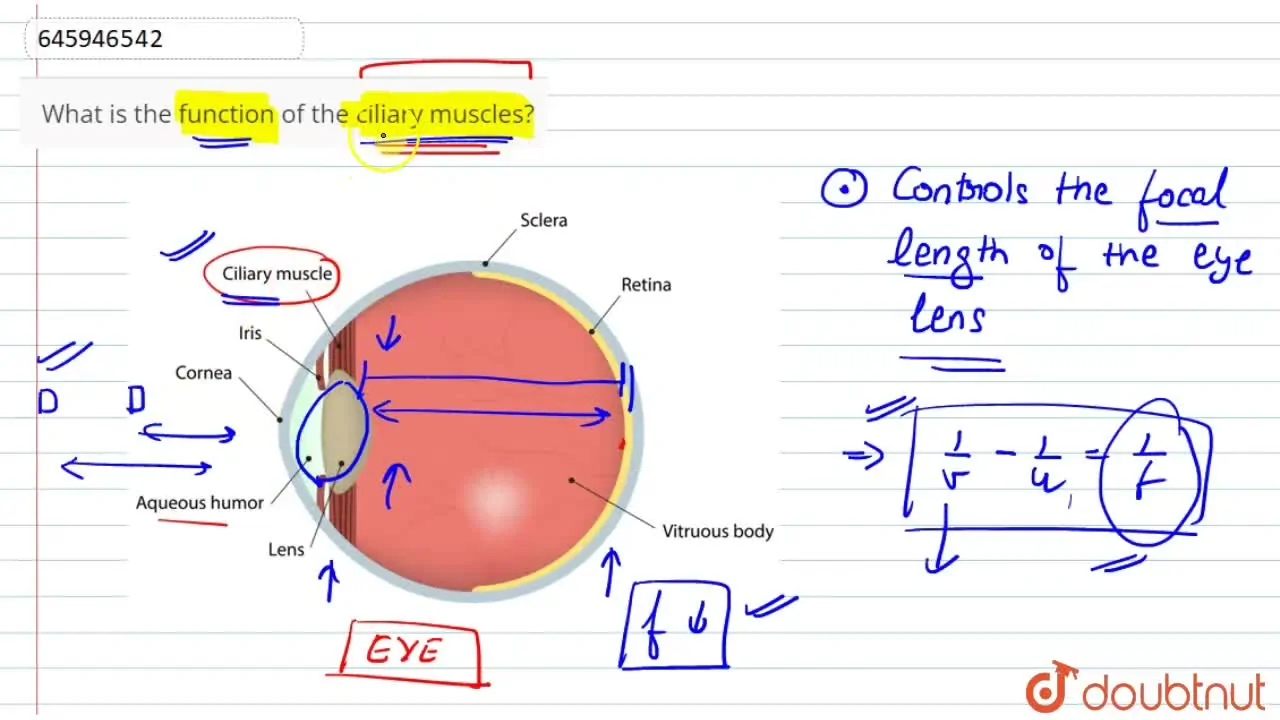 645946542
What is the function of the ciliary muscles?
⊙ Controls the focal
length of the eye
lens
Sclera
Ciliary muscle
Retina
Iris
Cornea
D D
Aqueous humor
Lens
Vitruous body
⇒ 1/v - 1/u = 1/f
f ↓
EYE
doubtnut